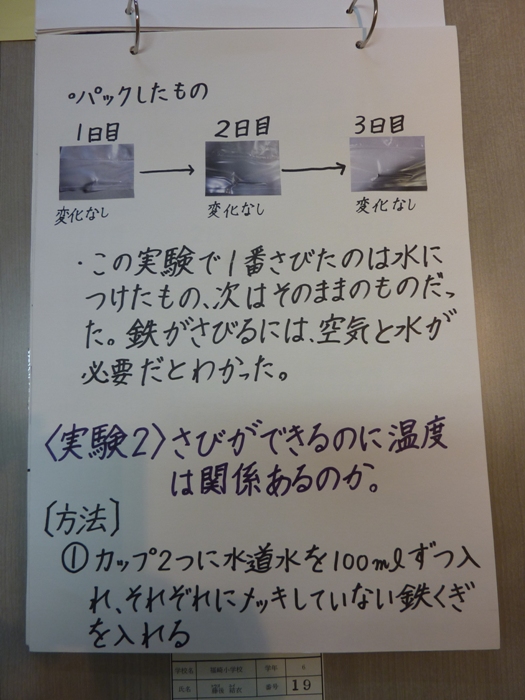 °パックしたもの
1日目 2日目 3日目
変化なし 変化なし 変化なし
・この実験で1番さびたのは水に
つけたもの、次はそのままのものだっ
た。鉄がさびるには、空気と水が
必要だとわかった。
〈実験2〉さびができるのに温度
は関係あるのか。
〔方法〕
①カップ2つに水道水を100mlずつ入
れ、それぞれにメッキしていない鉄くぎ
を入れる
学校名 小学校 学年 6
氏名 番号 19